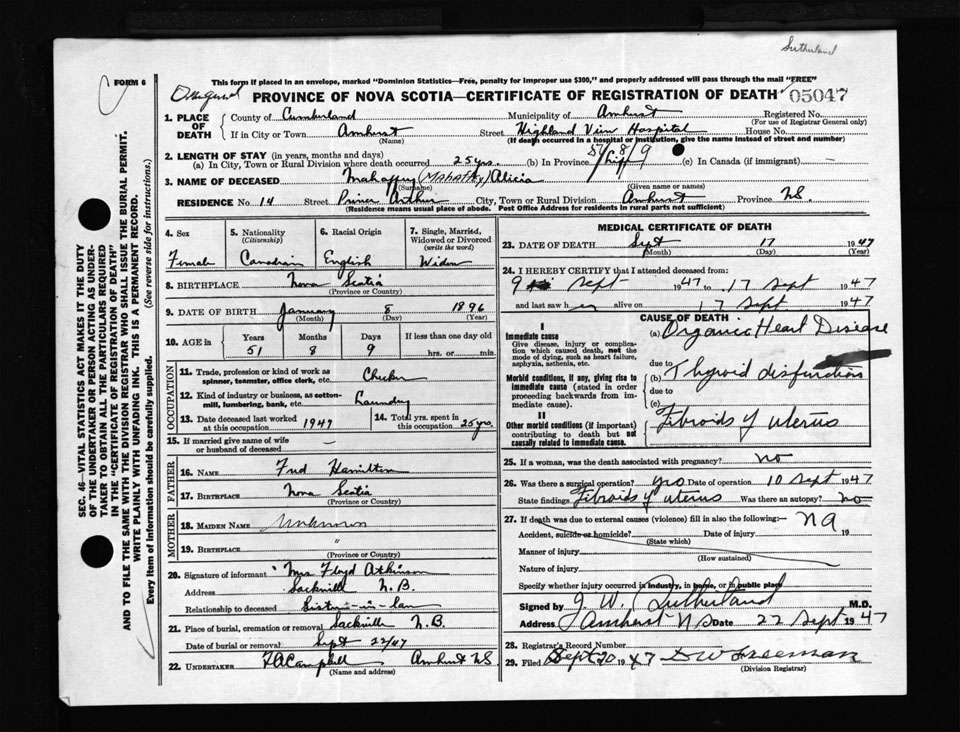 Sutherland
FORM 6
This form if placed in an envelope, marked "Dominion Statistics—Free, penalty for improper use $300," and properly addressed will pass through the mail "FREE"
PROVINCE OF NOVA SCOTIA—CERTIFICATE OF REGISTRATION OF DEATH 05047
1. PLACE OF DEATH
County of Cumberland Municipality of Amherst Registered No.
(For use of Registrar General only)
If in City or Town Amherst Street Highland View Hospital House No.
(Name) (If death occurred in a hospital or institution, give the name instead of street and number)
2. LENGTH OF STAY (in years, months and days)
(a) In City, Town or Rural Division where death occurred 25 yrs. (b) In Province Life (c) In Canada (if immigrant) —
3. NAME OF DECEASED Mahaffey (Mahaffey) Alicia
(Surname) (Given name or names)
RESIDENCE No. 14 Street Prince Arthur City, Town or Rural Division Amherst Province N.S.
(Residence means usual place of abode. Post Office Address for residents in rural parts not sufficient)
4. Sex
Female
5. Nationality
(Citizenship)
Canadian
6. Racial Origin
English
7. Single, Married, Widowed or Divorced
(write the word)
Widow
8. BIRTHPLACE Nova Scotia
(Province or Country)
9. DATE OF BIRTH January 8 1896
(Month) (Day) (Year)
10. AGE in Years Months Days If less than one day old
51 8 9 hrs. or min.
OCCUPATION
11. Trade, profession or kind of work as spinner, teamster, office clerk, etc. Checker
12. Kind of industry or business, as cotton-mill, lumbering, bank, etc. Laundry
13. Date deceased last worked at this occupation 1947
14. Total yrs. spent in this occupation 25 yrs.
15. If married give name of wife or husband of deceased —
FATHER
16. NAME Fred Hamilton
17. BIRTHPLACE Nova Scotia
(Province or Country)
MOTHER
18. MAIDEN NAME Unknown
19. BIRTHPLACE "
(Province or Country)
20. Signature of informant Mrs Floyd Atkinson
Address Sackville N.B.
Relationship to deceased Sister-in-law
21. Place of burial, cremation or removal Sackville N.B.
Date of burial or removal Sept 22/47
22. UNDERTAKER F A Campbell Amherst NS
(Name and address)
MEDICAL CERTIFICATE OF DEATH
23. DATE OF DEATH Sept 17 1947
(Month) (Day) (Year)
24. I HEREBY CERTIFY that I attended deceased from:
9 Sept 1947 to 17 Sept 1947
and last saw her alive on 17 Sept 1947
CAUSE OF DEATH
I
Immediate cause
Give disease, injury or complication which caused death, not the mode of dying, such as heart failure, asphyxia, asthenia, etc.
(a) Organic Heart Disease
due to
Morbid conditions, if any, giving rise to immediate cause (stated in order proceeding backwards from immediate cause).
(b) Thyroid disfunction
due to
(c)
II
Other morbid conditions (if important) contributing to death but not causally related to immediate cause.
Fibroids of uterus
25. If a woman, was the death associated with pregnancy? no
26. Was there a surgical operation? yes Date of operation 10 Sept 1947
State findings Fibroids of uterus Was there an autopsy? no
27. If death was due to external causes (violence) fill in also the following:— NA
Accident, suicide or homicide? Date of injury 19
(State which)
Manner of injury
(How sustained)
Nature of injury
Specify whether injury occurred in industry, in home, or in public place
Signed by J. W. Sutherland M.D.
Address Amherst NS Date 22 Sept 1947
28. Registrar's Record Number
29. Filed Sept 20 1947 D W Freeman
(Division Registrar)
SEC. 46—VITAL STATISTICS ACT MAKES IT THE DUTY
OF THE UNDERTAKER OR PERSON ACTING AS UNDER-
TAKER TO OBTAIN ALL THE PARTICULARS REQUIRED
IN THE "CERTIFICATE OF REGISTRATION OF DEATH"
AND TO FILE THE SAME WITH THE DIVISION REGISTRAR WHO SHALL ISSUE THE BURIAL PERMIT.
WRITE PLAINLY WITH UNFADING INK. THIS IS A PERMANENT RECORD.
Every item of information should be carefully supplied. (See reverse side for instructions.)